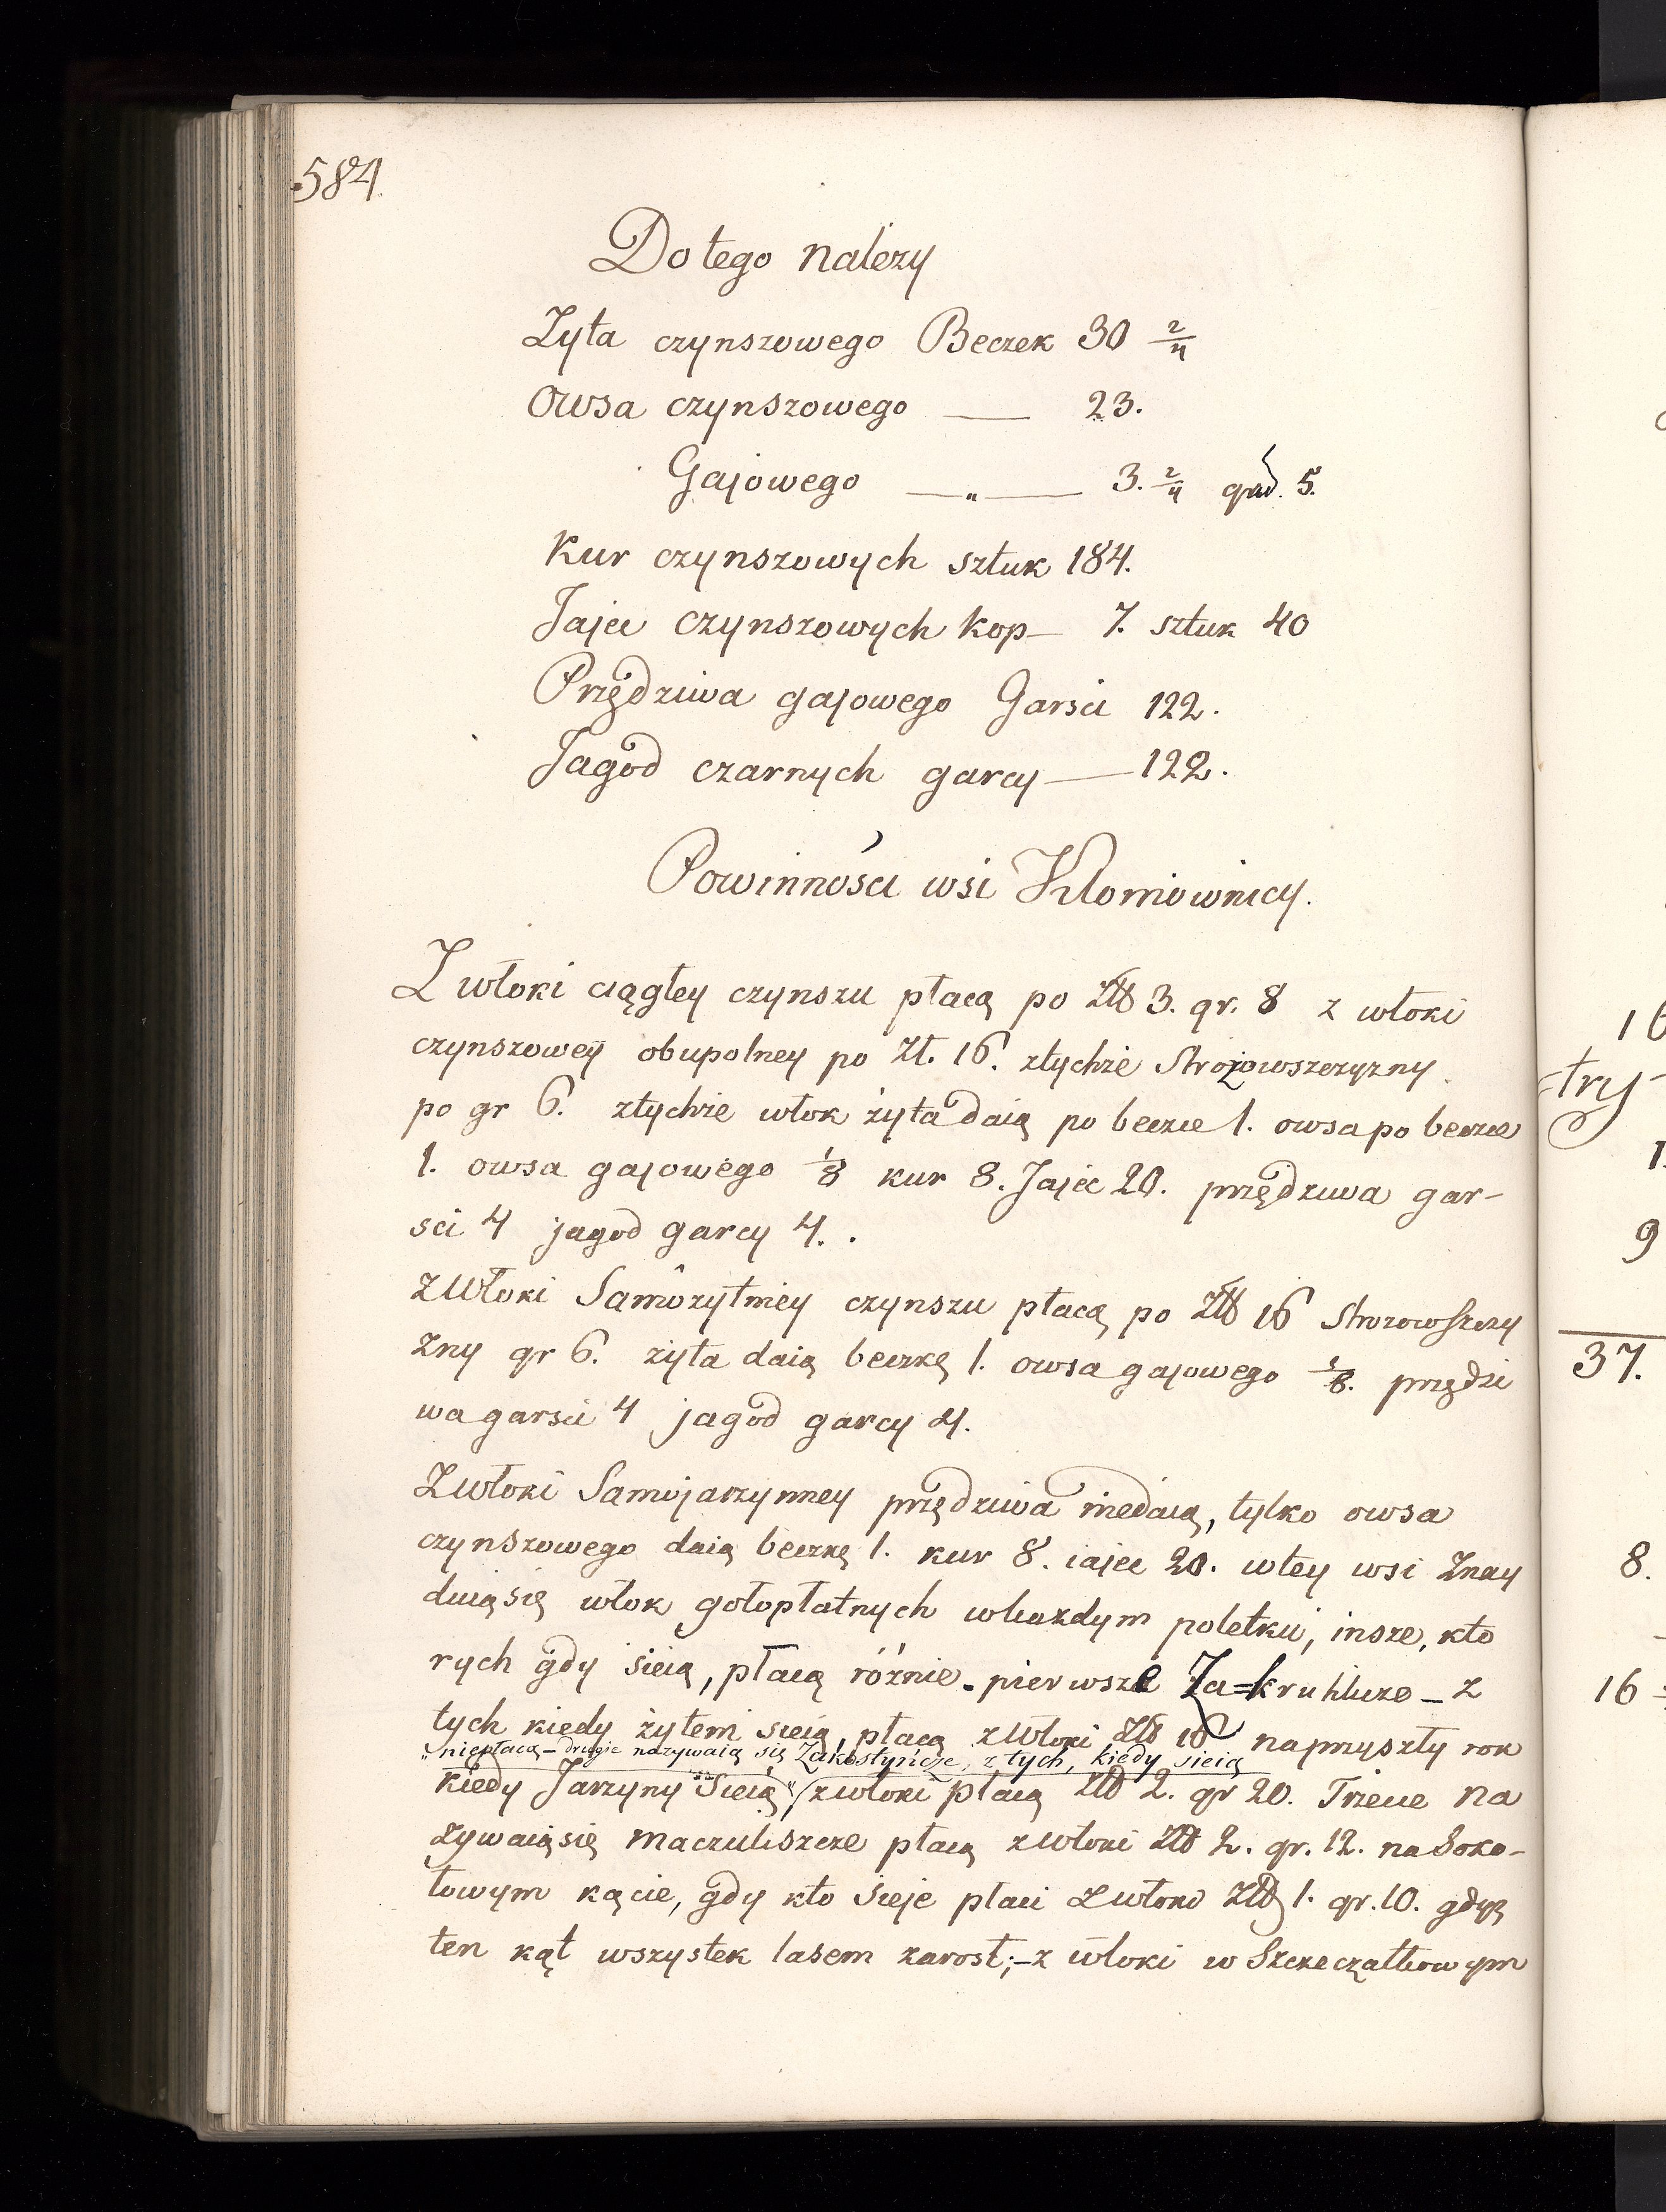 584.
Do tego nalezy
Zyta czynszowego Beczek 30 2/4
Owsa czynszowego — 23.
Gajowego —„— 3. 2/4 5.
Kur czynszowych sztuk 184.
Jajec czynszowych kop — 7. sztuk 40
Przędziwa gajowego Garsci 122.
Jagod czarnych garcy — 122.
Powinności wsi Kłomiownicy.
Z włoki ciągłey czynszu płacą po Złł 3. gr. 8 z włoki
czynszowey obupolney po Zł. 16. ztychże Strożowszczyzny
po gr 6. ztychże włok żyta daią po beczce 1. owsa po beczce
1. owsa gajowego 1/8 kur 8. Jajec 20. przędziwa gar-
sci 4 jagod garcy 4.
z Włoki Samożytniey czynszu płacą po Złł 16 Strozowszczy
zny gr 6. żyta daią beczkę 1. owsa gajowego 1/8. przędzi
wa garsci 4 jagod garcy 4.
Z Włoki Samojarzynney przędziwa niedaią, tylko owsa
czynszowego daią beczkę 1. kur 8. iajec 20. wtey wsi Znay
duią się włok gołopłatnych wkażdym poletku, insze, kto
rych gdy sieią, płacą różnie - pierwsze Za=kruhlicze - z
tych kiedy żytem sieią, płacą z Włoki Złł 16 naprzyszły rok
„niepłacą - drugie nazywaią się Zakostyńcze, z tych, kiedy sieią
kiedy Jarzyny Sieią" / z włoki płacą Złł 2. gr 20. Trzecie na
zywaią się maczuliszcze płacą z Włoki Złł 2. gr. 12. na Soko-
łowym kącie, gdy kto sieje płaci z Włoki Złł 1. gr. 10. gdyż
ten kąt wszystek lasem zarosł; - z włoki w
16
try
1.
9
37.
8.
16